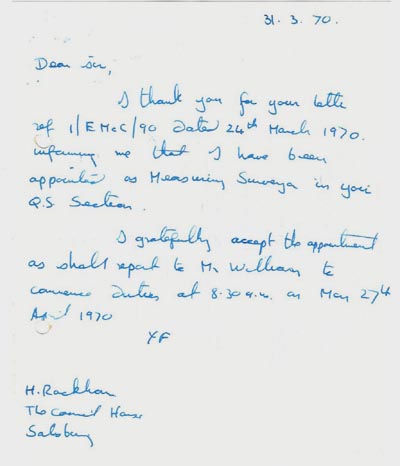 31. 3. 70.
Dear Sir,
I thank you for your letter
ref 1/EMcC/90 Dated 24th March 1970.
informing me that I have been
appointed as Measuring Surveyor in your
Q.S. Section.
I gratefully accept the appointment
as shall report to Mr William to
commence duties at 8.30 a.m. on Mon 27th
April 1970
YF
H. Rackham
The Council House
Salisbury